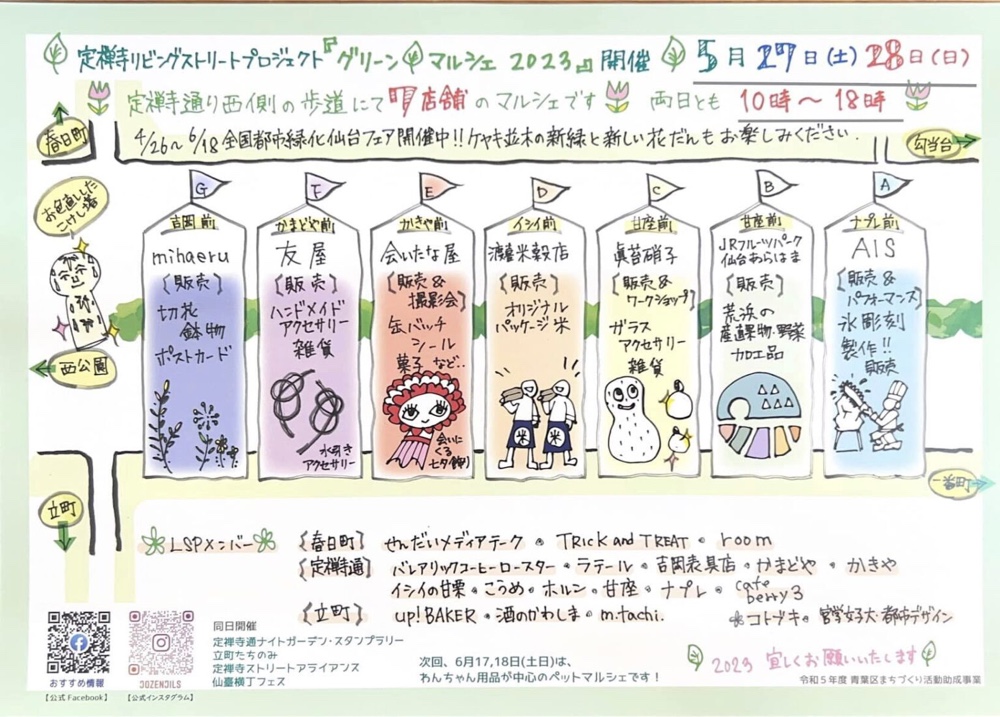 定禅寺リビングストリートプロジェクト『グリーンマルシェ 2023』開催 5月27日(土)28日(日)
定禅寺通り西側の歩道にて 7店舗のマルシェです 両日とも 10時〜18時
春日町
4/26〜6/18全国都市緑化仙台フェア開催中!!ケヤキ並木の新緑と新しい花だんもお楽しみください.
勾当台
お色直しした
こけし塔
西公園
G
吉岡前
mihaeru
〔販売〕
切花
鉢物
ポストカード
F
かまどや前
友屋
〔販売〕
ハンドメイド
アクセサリー
雑貨
水引き
アクセサリー
E
かきや前
会いたな屋
〔販売&
撮影会〕
缶バッチ
シール
菓子など..
会いに
くる
七夕飾り
D
イシイ前
渡喜米穀店
〔販売〕
オリジナル
パッケージ米
米
米
C
甘座前
眞苔硝子
〔販売&
ワークショップ〕
ガラス
アクセサリー
雑貨
B
甘座前
JRフルーツパーク
仙台あらはま
〔販売〕
荒浜の
産直果物・野菜
加工品
A
ナプレ前
AIS
〔販売&
パフォーマンス〕
氷彫刻
製作!!
販売
立町
一番町
LSPメンバー
〔春日町〕 せんだいメディアテーク • TRick and TREAT • room
〔定禅寺通〕 バレアリックコーヒーロースター • ラテール • 吉岡表具店 • かまどや • かきや
イシイの甘栗 • こうめ • ホルン • 甘座 • ナプレ • cafe berry 3
〔立町〕 up! BAKER • 酒のかわしま • m.tachi.
コトブキ • 宮学女子大・都市デザイン
おすすめ情報
【公式Facebook】
JOZENJILS
【公式インスタグラム】
同日開催
定禅寺通ナイトガーデン・スタンプラリー
立町たちのみ
定禅寺ストリートアライアンス
仙臺横丁フェス
次回、6月17,18日(土日)は、
わんちゃん用品が中心のペットマルシェです!
2023 宜しくお願いいたします
令和5年度 青葉区まちづくり活動助成事業